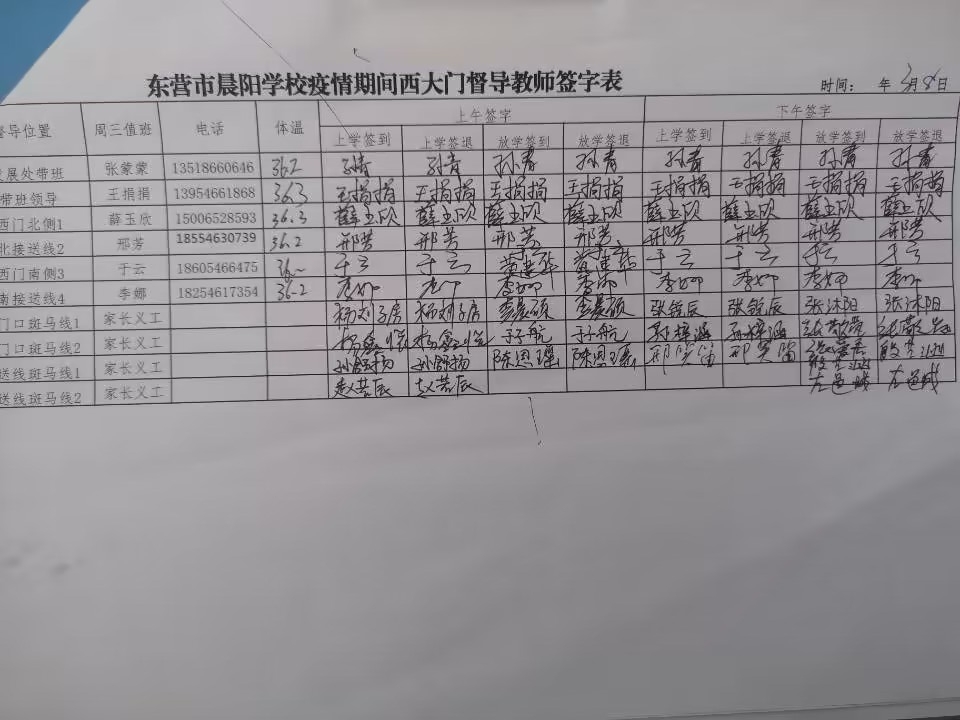 东营市晨阳学校疫情期间西大门督导教师签字表
时间： 年 3月8日
督导位置 周三值班 电话 体温 上午签字 下午签字
上学签到 上学签退 放学签到 放学签退 上学签到 上学签退 放学签到 放学签退
发展处带班 张蒙蒙 13518660646 36.2 孙青 孙青 孙青 孙青 孙青 孙青 孙青 孙青
带班领导 王捐捐 13954661868 36.3 王捐捐 王捐捐 王捐捐 王捐捐 王捐捐 王捐捐 王捐捐 王捐捐
西门北侧1 薛玉欣 15006528593 36.3 薛玉欣 薛玉欣 薛玉欣 薛玉欣 薛玉欣 薛玉欣 薛玉欣 薛玉欣
北接送线2 邢芳 18554630739 36.2 邢芳 邢芳 邢芳 邢芳 邢芳 邢芳 邢芳 邢芳
西门南侧3 于云 18605466475 36 于云 于云 于云 于云 于云 于云
南接送线4 李娜 18254617354 36-2 李娜 李娜 李娜 李娜 李娜 李娜 李娜 李娜
门口斑马线1 家长义工 杨刘子房 杨刘子房 李晨硕 李晨硕 张锐辰 张锐辰 张沐阳 张沐阳
门口斑马线2 家长义工 于子航 于子航
送线斑马线1 家长义工 孙舒扬 孙舒扬 陈恩瑾 陈恩瑾 邢笑笛 邢笑笛
送线斑马线2 家长义工 赵若辰 赵若辰 左邑城 左邑城